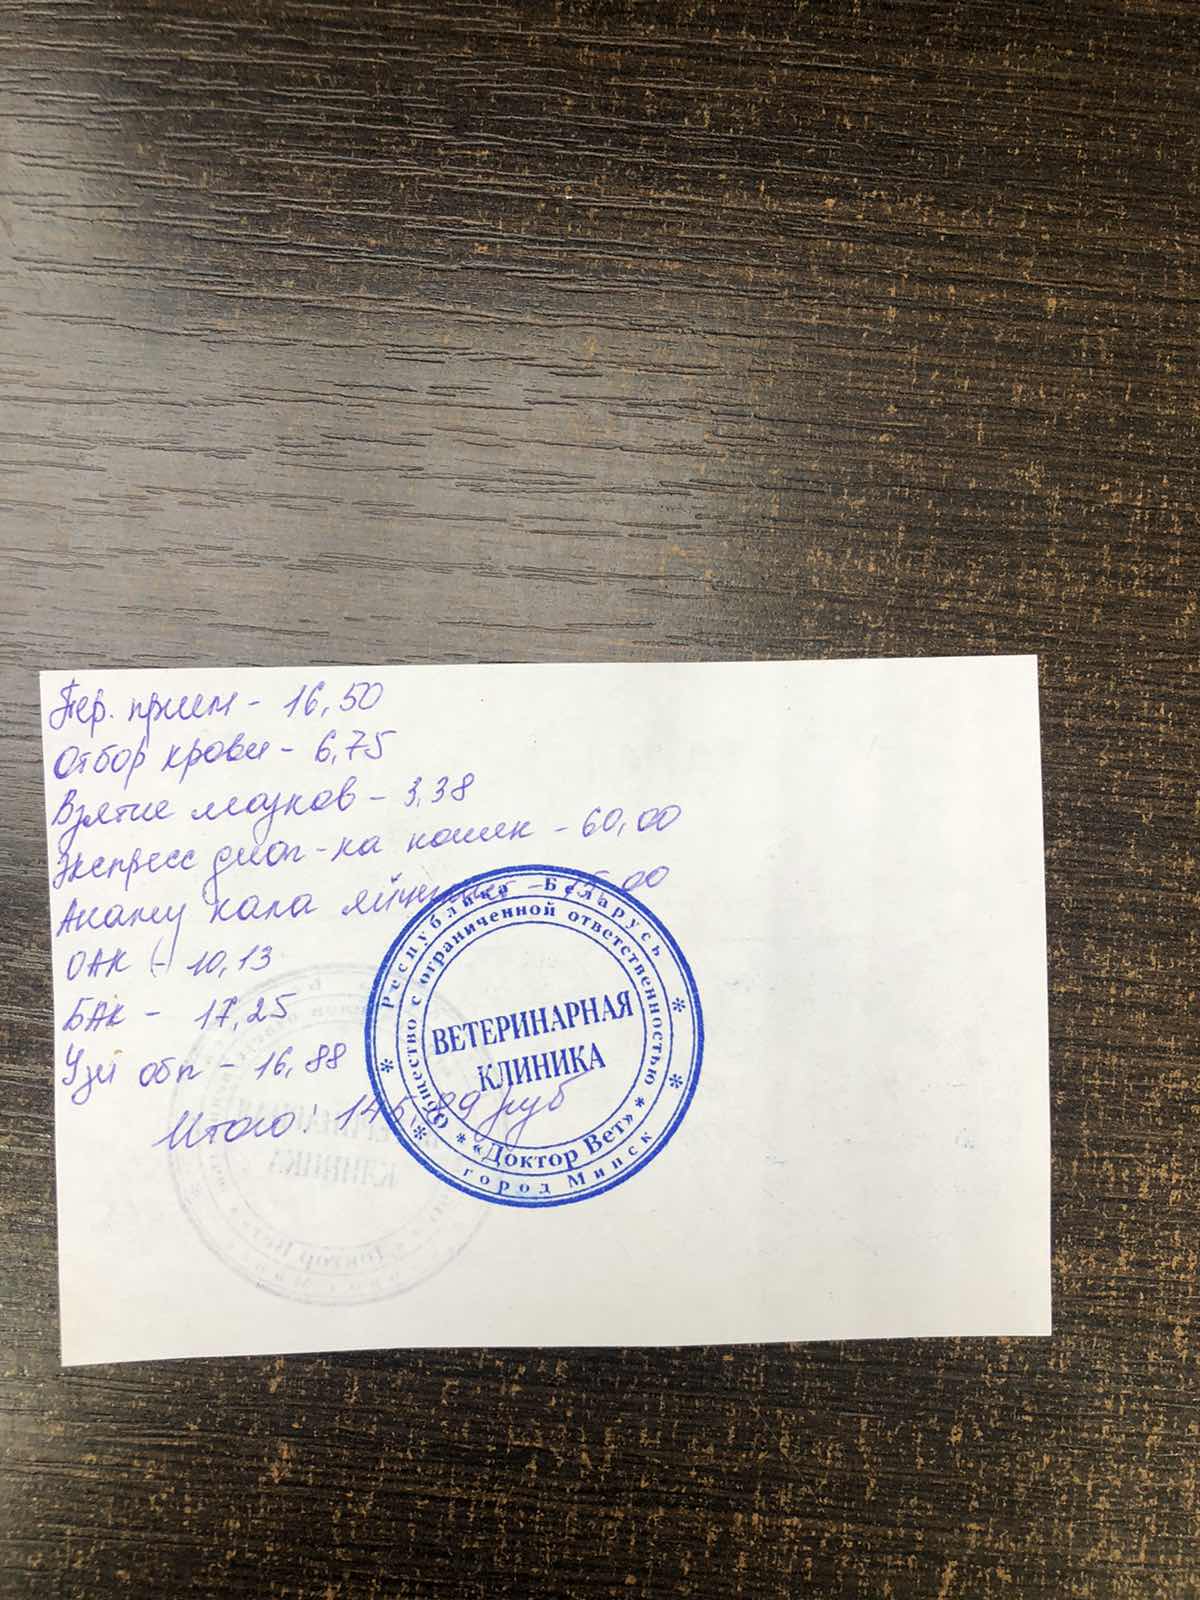 Пер. прием - 16,50
Отбор крови - 6,75
Взятие мазков - 3,38
Экспресс диаг-ка кошек - 60,00
Анализ кала - 15,00
ОАК - 10,13
БАК - 17,25
Узи обп - 16,88
Итого: 145,89 руб
Республика Беларусь
Общество с ограниченной ответственностью
ВЕТЕРИНАРНАЯ
КЛИНИКА
«Доктор Вет»
город Минск